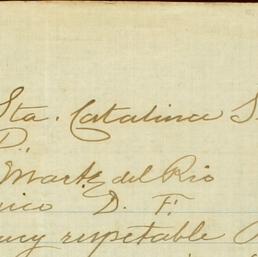 Sta. Catalina S
D.
Martz del Rio
xico D. F.
muy respetable